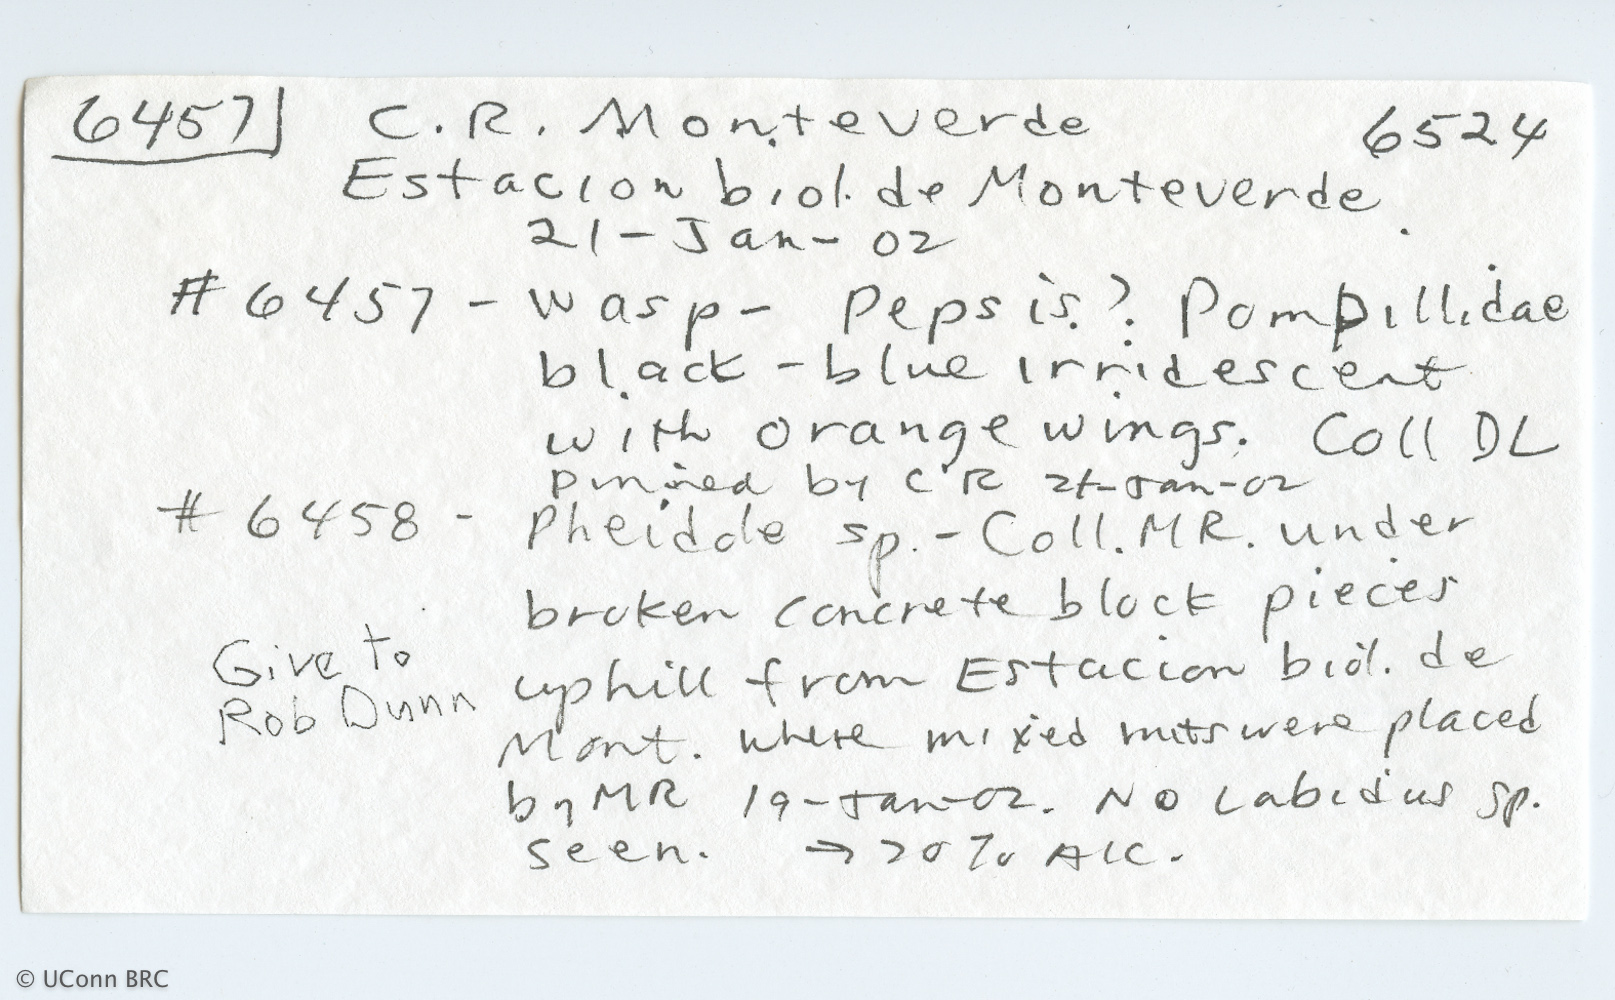 6457 C.R. Monteverde 6524
Estacion biol. de Monteverde.
21-Jan-02
#6457 - Wasp- Pepsis? Pompillidae
black-blue irridescent
with orange wings. Coll DL
Pinned by CR 21-Jan-02
#6458 - Pheidole sp.- Coll. MR. under
broken concrete block pieces
Give to
Rob Dunn
uphill from Estacion biol. de
Mont. where mixed were placed
by MR 19-Jan-02. No Labidus sp.
seen. → 70% Alc.
© UConn BRC